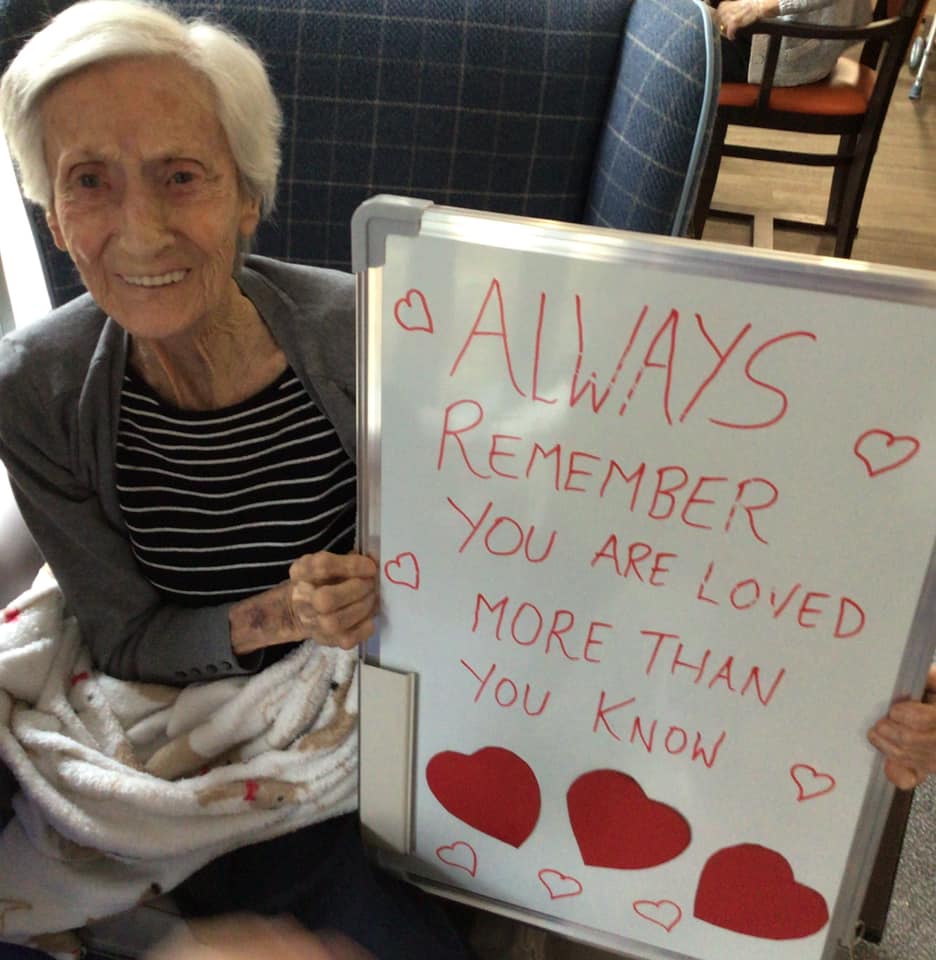 ALWAYS
REMEMBER
YOU ARE LOVED
MORE THAN
YOU KNOW